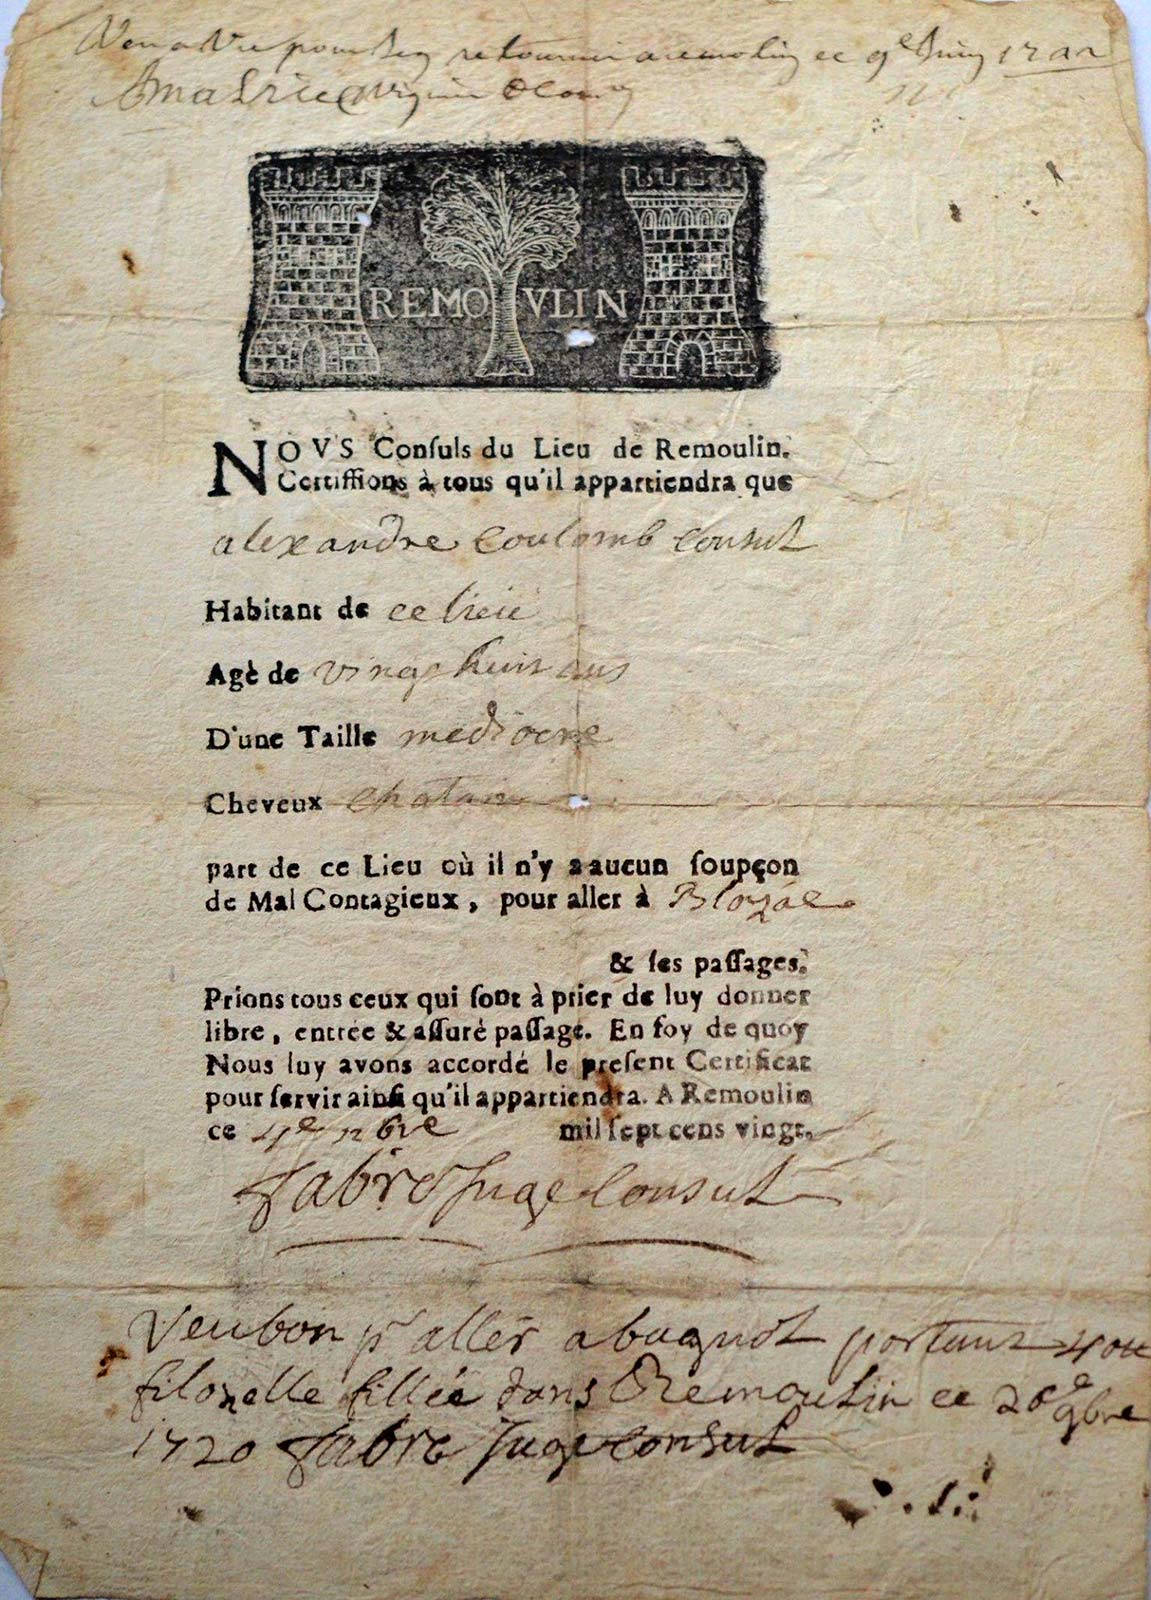 retourner a remolin ce 9e
REMOULIN
NOVS Conſuls du Lieu de Remoulin.
Certiffions à tous qu'il appartiendra que
alexandre coulomb consul
Habitant de ce lieu
Agè de vingt huit ans
D'une Taille mediocre
Cheveux chatain
part de ce Lieu où il n'y a aucun ſoupçon
de Mal Contagieux, pour aller à Blozac
& ſes paſſages.
Prions tous ceux qui ſont à prier de luy donner
libre, entrée & aſſuré paſſage. En foy de quoy
Nous luy avons accordé le preſent Certificat
pour ſervir ainſi qu'il appartiendra. A Remoulin
ce 4e mil ſept cens vingt.
fabre Juge Consul
Veu bon pr aller a portant
filozelle fillée dans Remoulin ce 20e 9bre
1720 fabre Juge consul